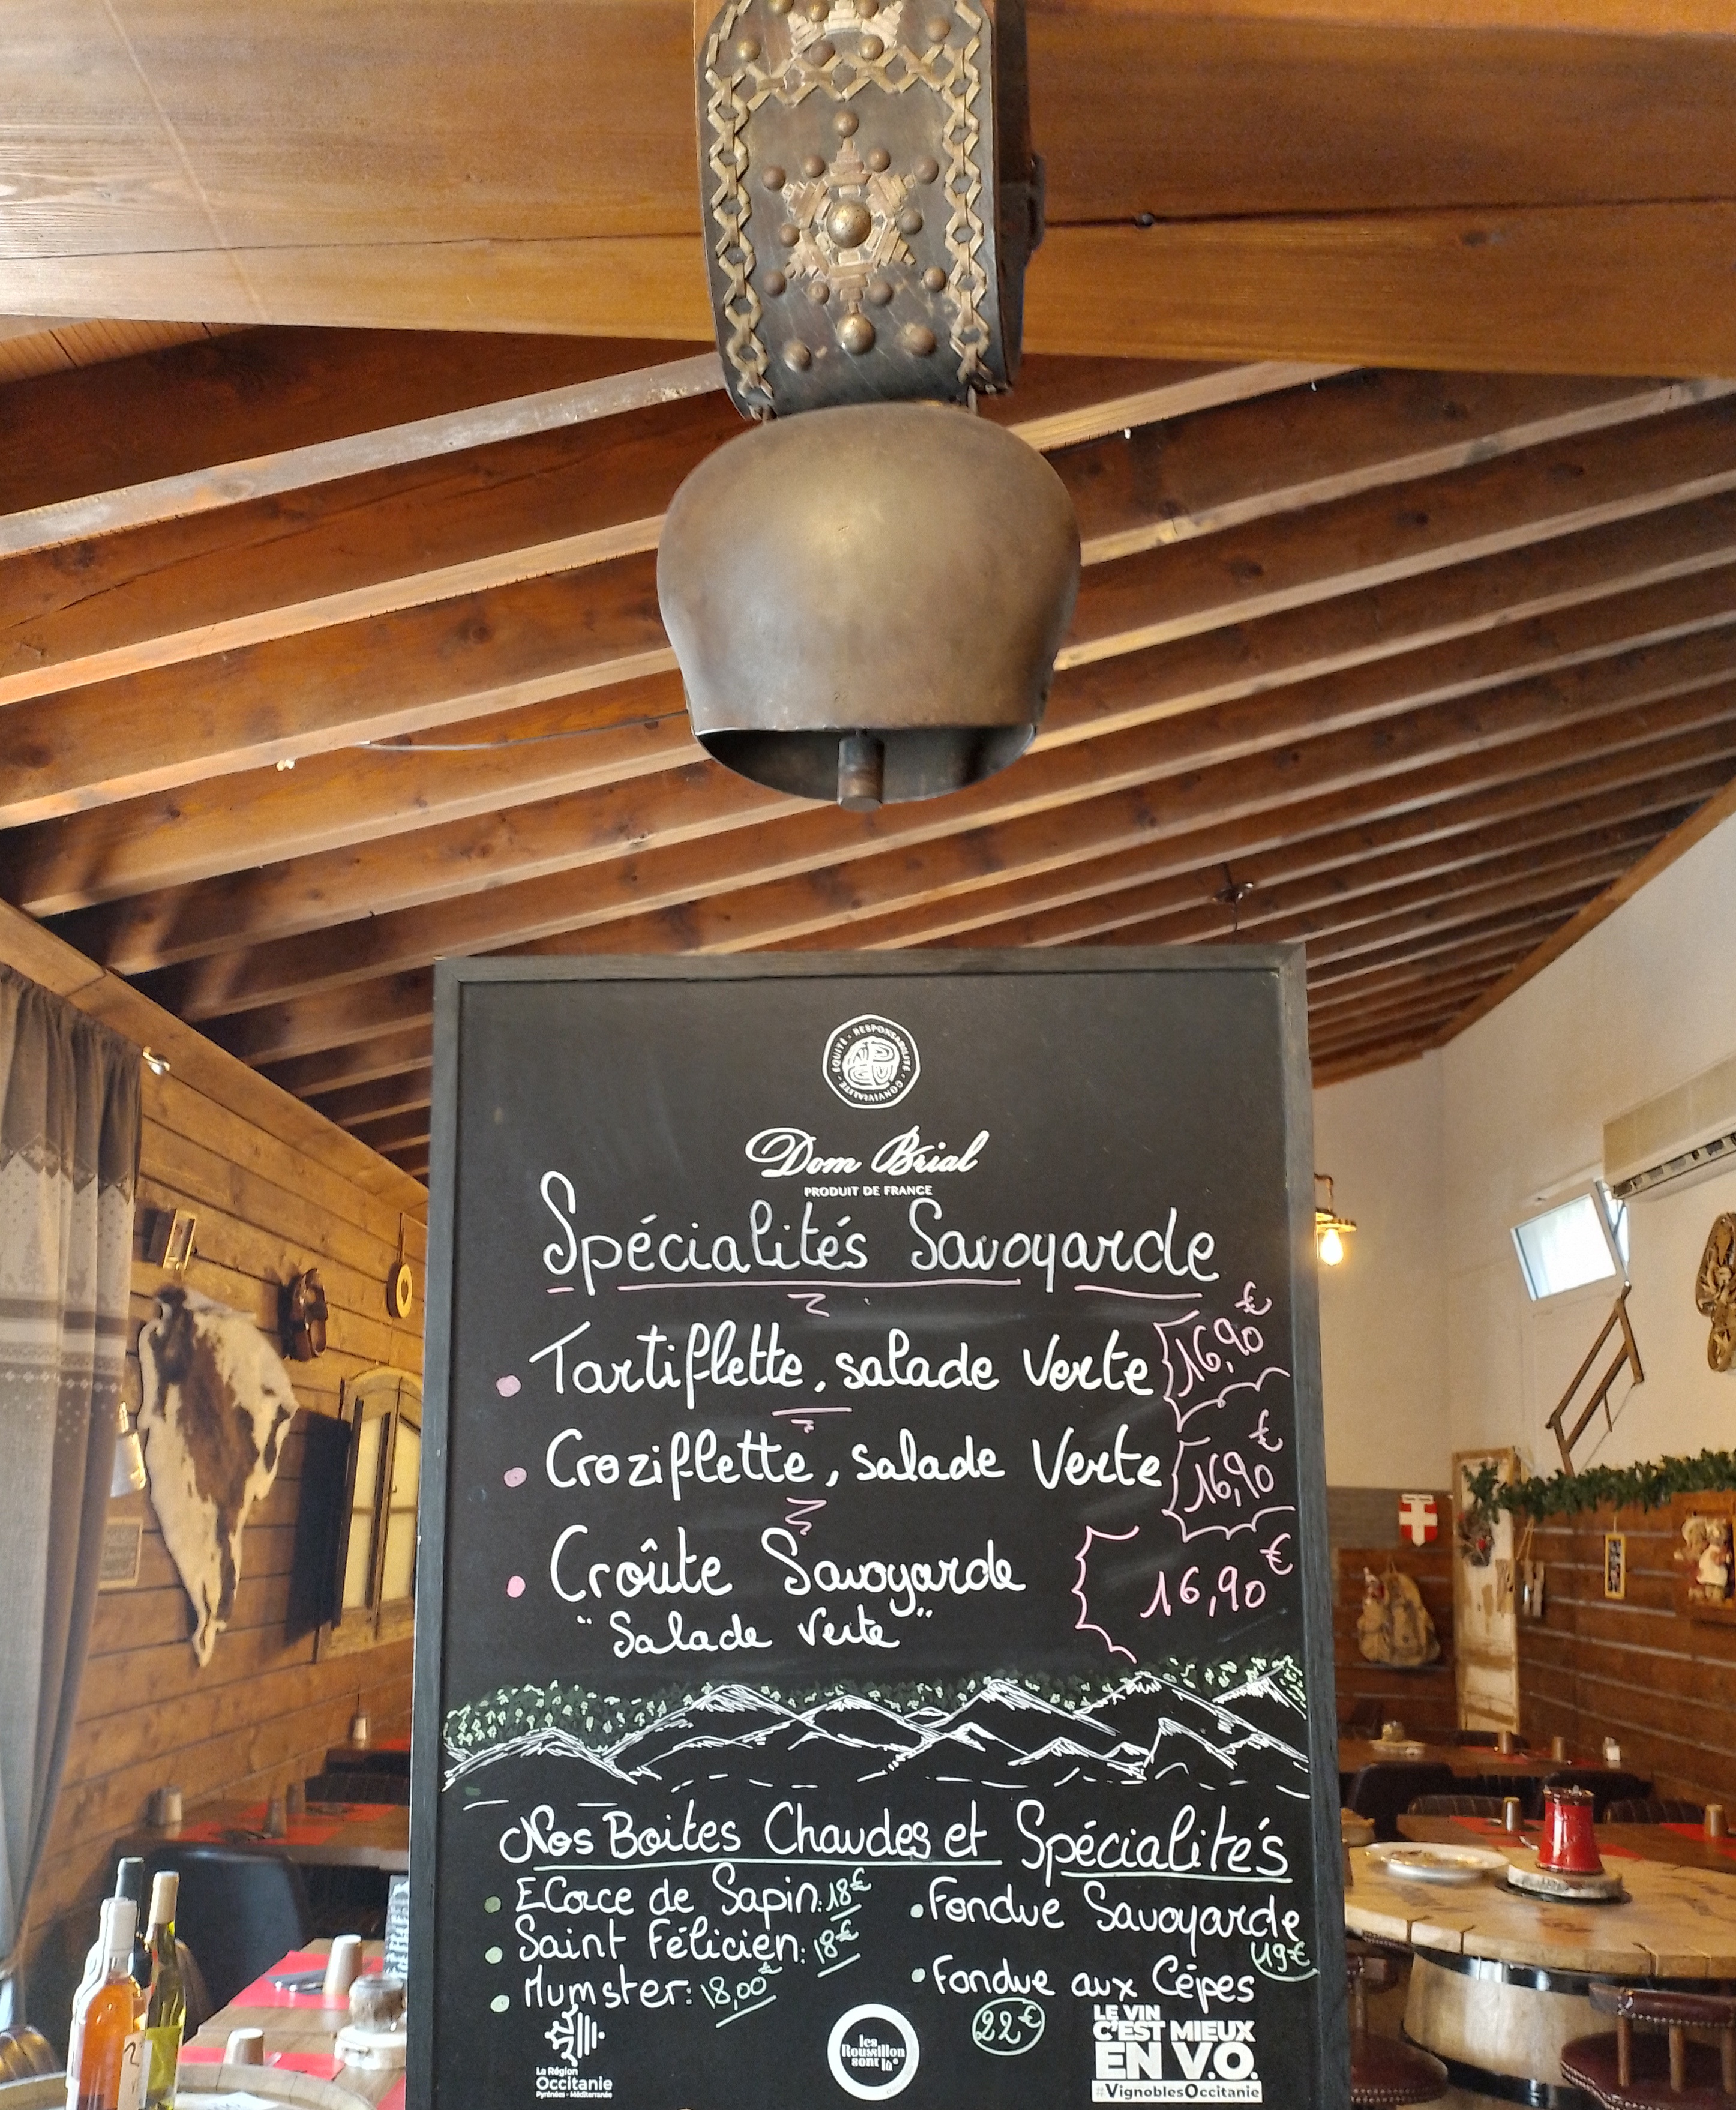 RESPONSABILITÉ · CONVIVIALITÉ · ÉQUITÉ ·
Dom Brial
PRODUIT DE FRANCE
Spécialités Savoyarde
• Tartiflette, salade verte 16,90€
• Croziflette, salade verte 16,90€
• Croûte Savoyarde 16,90€
"Salade verte"
Nos Boites Chaudes et Spécialités
• Ecorce de Sapin: 18€
• Saint Félicien: 18€
• Mumster: 18,00€
• Fondue Savoyarde
19€
• Fondue aux Cèpes
22€
La Région
Occitanie
Pyrénées - Méditerranée
les
Roussillon
sont là
LE VIN
C'EST MIEUX
EN V.O.
#VignoblesOccitanie